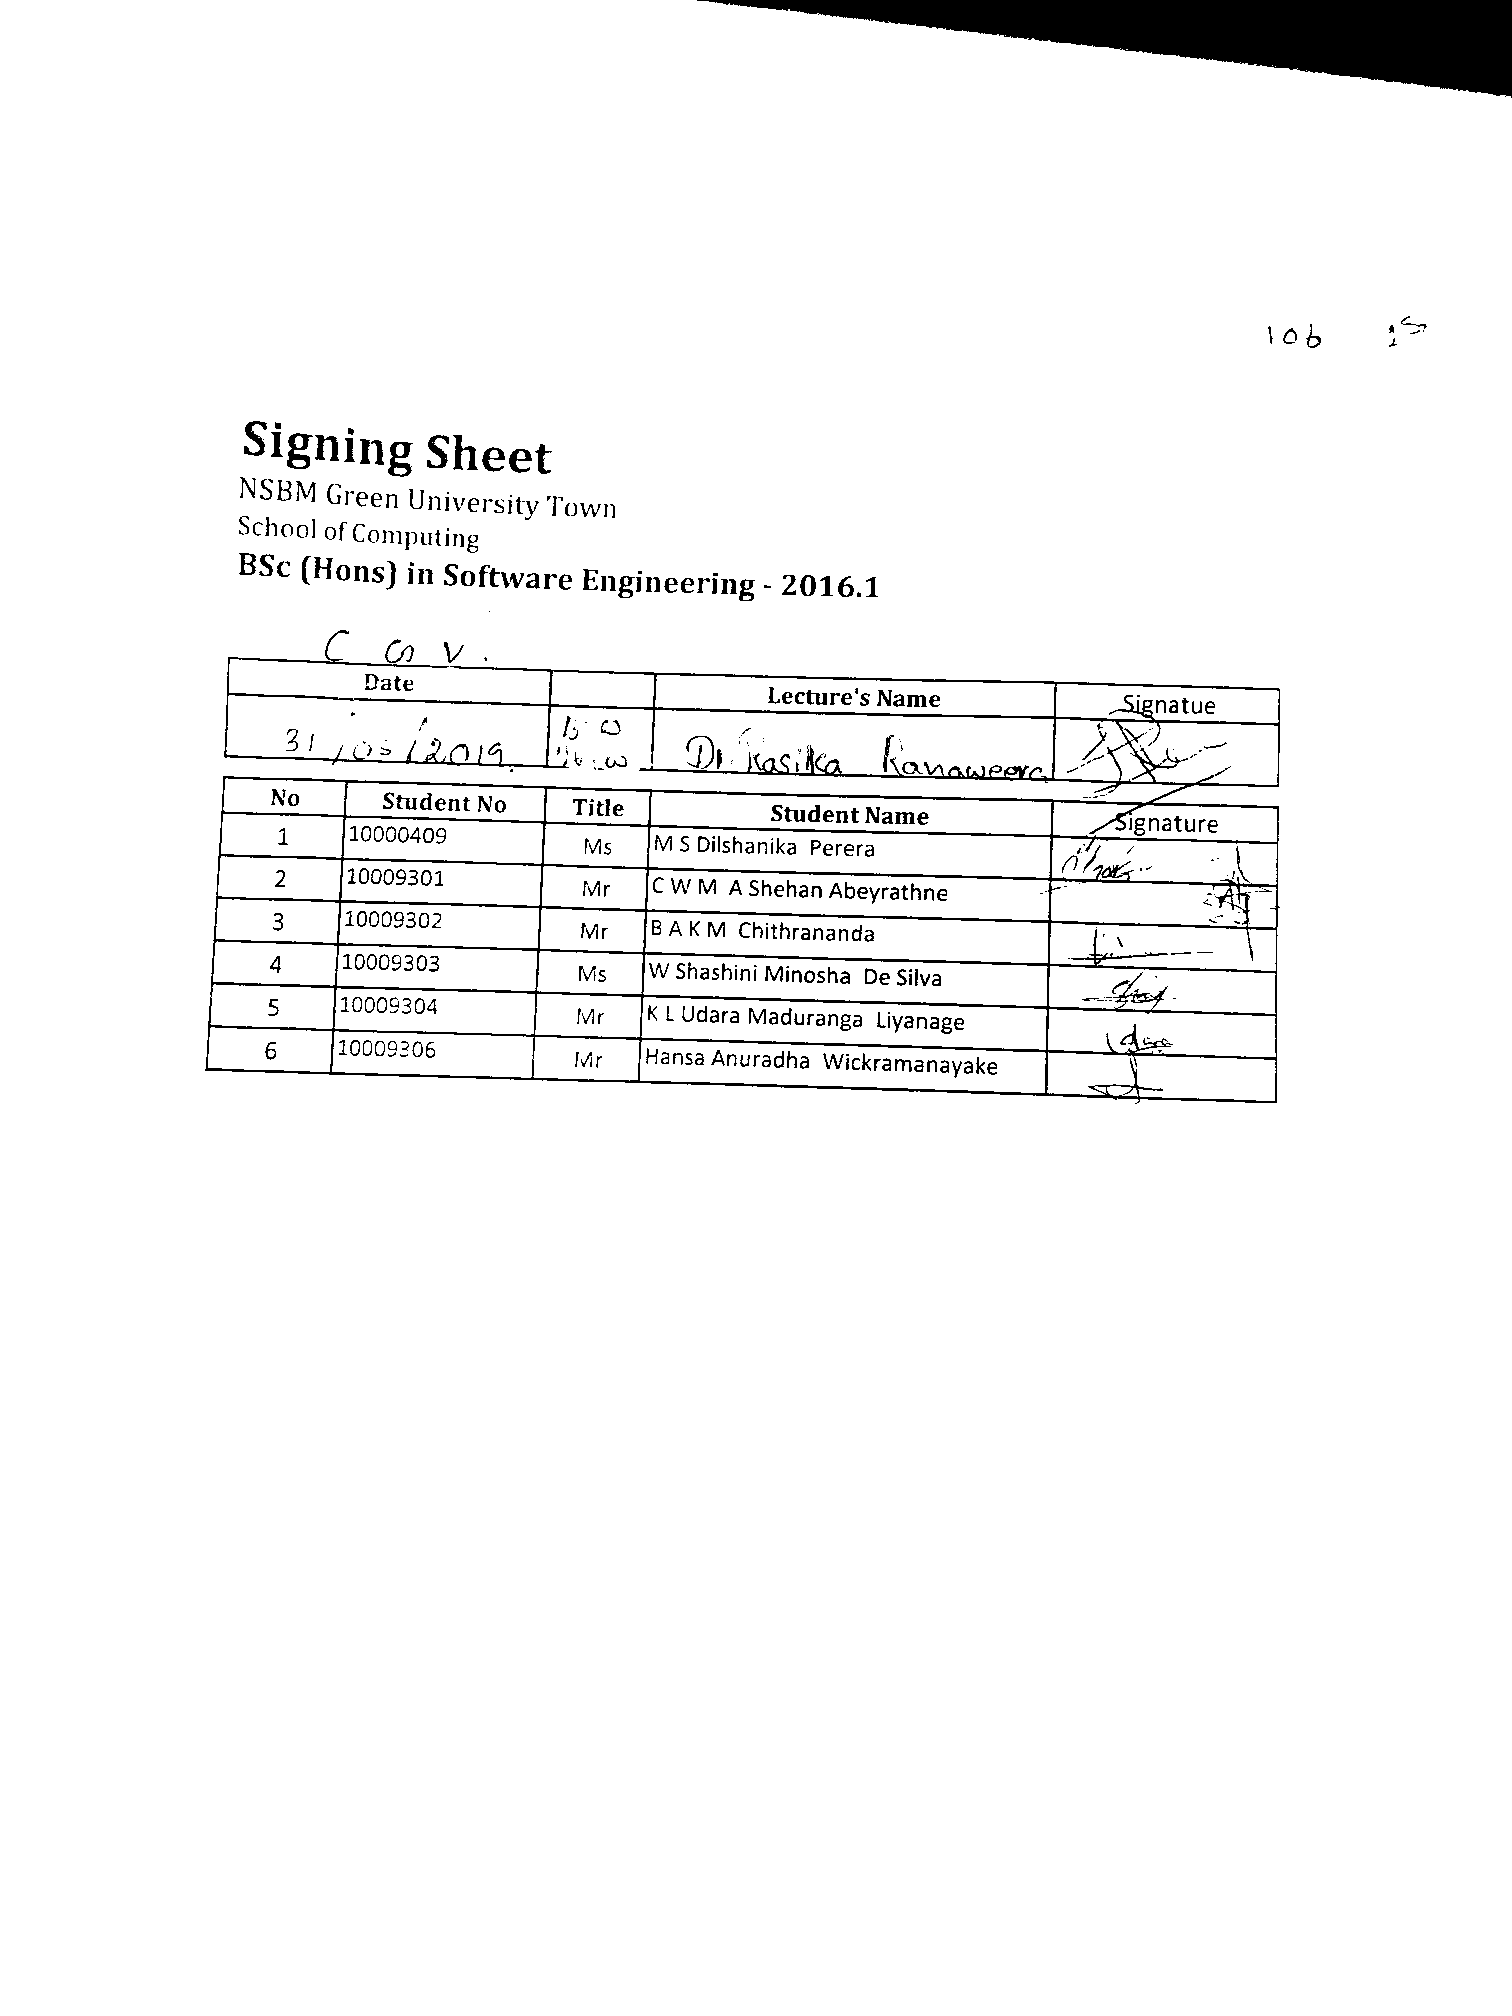 106
Signing Sheet
NSBM Green University Town
School of Computing
BSc (Hons) in Software Engineering - 2016.1
C G V .
Date Lecture's Name Signatue
31/05/2019. Dr. Rasika Ranaweera
No Student No Title Student Name Signature
1 10000409 Ms M S Dilshanika Perera
2 10009301 Mr C W M A Shehan Abeyrathne
3 10009302 Mr B A K M Chithrananda
4 10009303 Ms W Shashini Minosha De Silva
5 10009304 Mr K L Udara Maduranga Liyanage
6 10009306 Mr Hansa Anuradha Wickramanayake